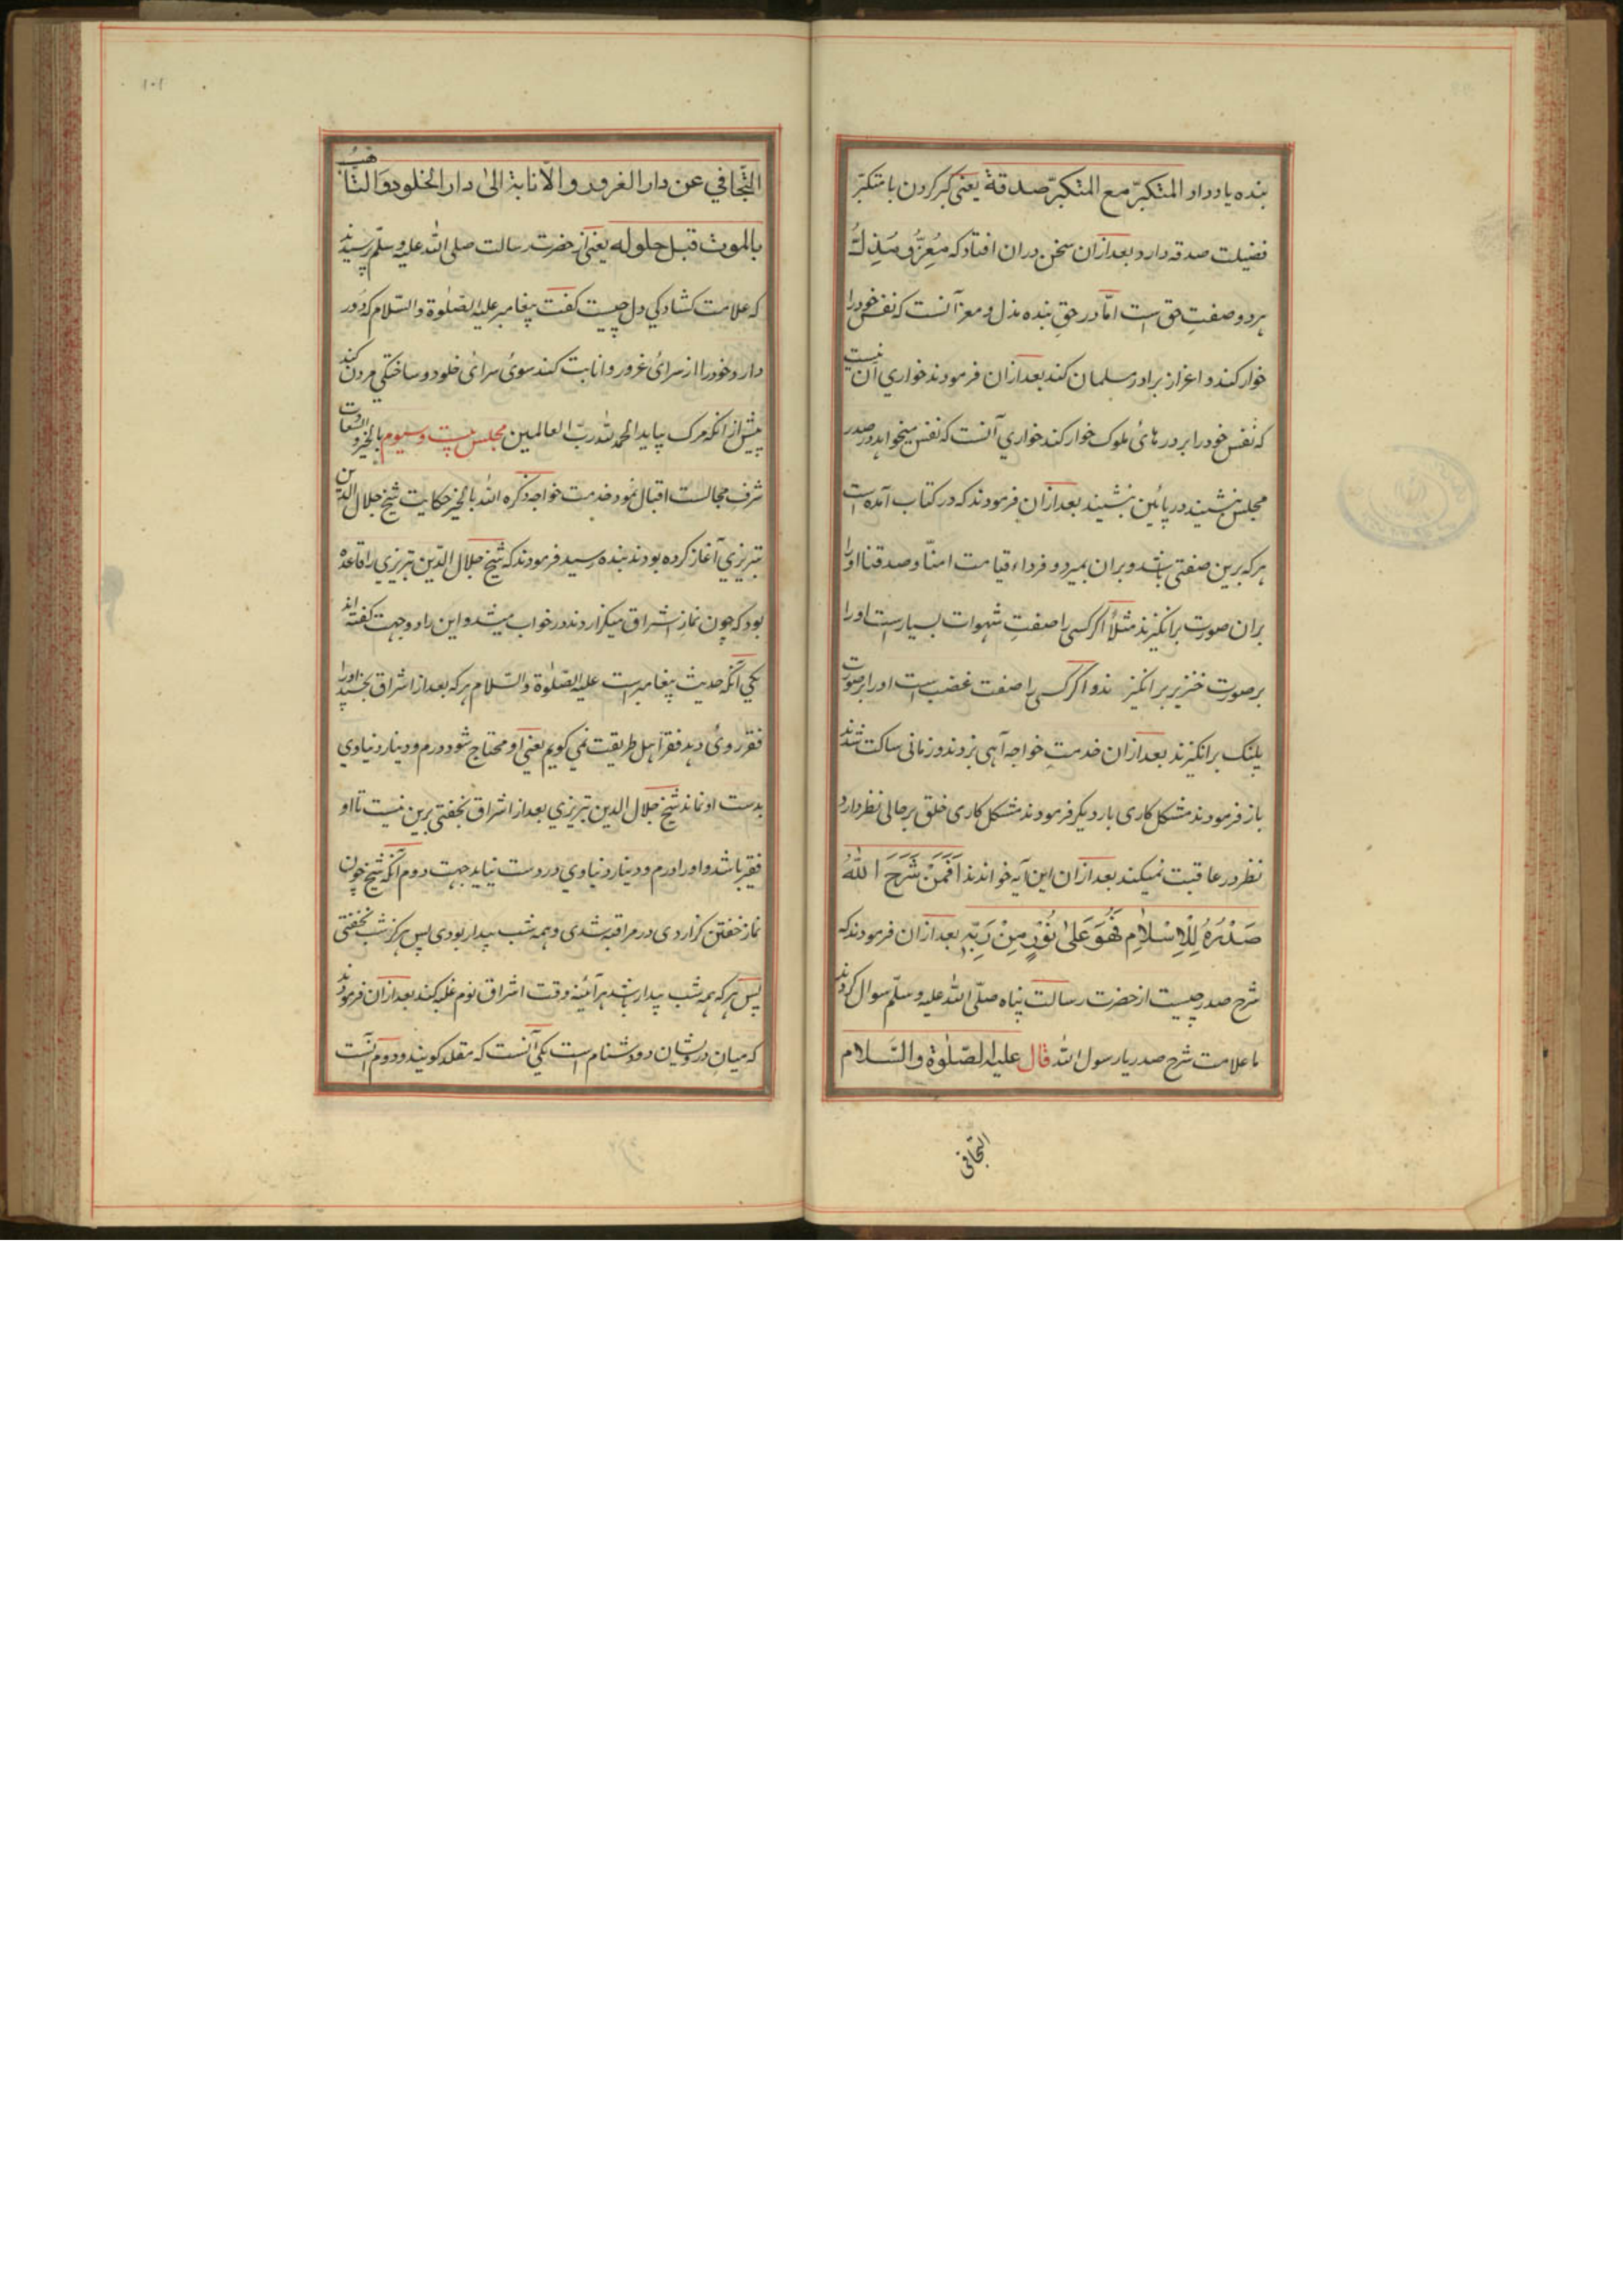 بنده یاد داد المتکبّر مع المتکبّر صدقة یعنی کبر کردن با متکبّر
فضیلت صدقه دارد بعد ازان سخن دران افتاد که مُعِزُّ و مُذِلُّ
هر دو صفتِ حق است امّا در حقِ بنده مذل و معز آنست که نفس خود را
خوار کند و اعزاز برادر مسلمان کند بعد ازان فرمودند خواری آن نیست
که نفس خود را بر درهائ ملوک خوار کند خواری آنست که نفس میخواهد در صدر
مجلس بنشیند در پائین بنشیند بعد ازان فرمودند که در کتاب آمده است
هر که برین صفتی باشد و بران بمیرد و فرداء قیامت امنّا و صدقنا او را
بران صورت برانکیزند مثلاً اکر کسی را صفتِ شهوات بسیار است او را
بر صورت خنزیر برانکیزند و اکر کسی را صفت غضب است او را بر صورت
پلنک برانکیزند بعد ازان خدمتِ خواجه آهی بزدند و زمانی ساکت شدند
باز فرمودند مشکل کاری بار دیکر فرمودند مشکل کاری خلق بر حالی نظر دارد
نظر در عاقبت نمیکند بعد ازان این آیه خواندند اَفَمَنْ شَرَحَ اللّٰهُ
صَدْرَهُ لِلْاِسْلَامِ فَهُوَ عَلیٰ نُوْرٍ مِنْ رَبِّهِ بعد ازان فرمودند که
شرح صدر چیست از حضرت رسالت پناه صلّی الله علیه وسلّم سوال کردند
ما علامت شرح صدر یا رسول الله قال علیه الصّلوٰة والسّلام
التجافی
۱۰۱
التّجافي عن دار الغرور والأنابة الیٰ دار الخلود والتّاهّب
بالموت قبل حلوله یعنی از حضرت رسالت صلی الله علیه وسلّم پرسیدند
که علامت کشادکی دل چیست کفت پیغامبر علیه الصّلوٰة والسّلام که دور
دارد خود را از سرائ غرور و انابت کند سوئ سرائ خلود و ساختکی مردن کند
پیش از انکه مرک بیاید الحمد لله ربّ العالمین مجلس بیست و سیوم بالخیر و السّعادت
شرف مجالست اقبال نمود خدمت خواجه ذکره الله بالخیر حکایت شیخ جلال الدّین
تبریزي آغاز کرده بودند بنده رسید فرمودند که شیخ جلال الدّین تبریزي را قاعده
بود که چون نمازِ اشراق میکزاردند در خواب میشد و این را دو جهت کفته اند
یکی آنکه حدیث پیغامبر است علیه الصّلوٰة والسّلام هر که بعد از اشراق بخسپد او را
فقر روئ دهد فقر اهل طریقت نمی کویم یعنی او محتاج شود و درم و دینار دنیاوی
بدست او نماند شیخ جلال الدین تبریزي بعد از اشراق بخفتی برین نیست تا او
فقیر باشد و او را درم و دینار دنیاوي در دست نیاید جهت دوم آنکه شیخ چون
نماز خفتن کزاردی در مراقبه شدی و همه شب بیدار بودی پس هرکز شب نخفتی
پس هر که همه شب بیدار باشد هرآئینه وقت اشراق نوم غلبه کند بعد ازان فرمودند
که میانِ درویشان دو دشنام است یکی آنست که مقلد کویند و دوم آنست